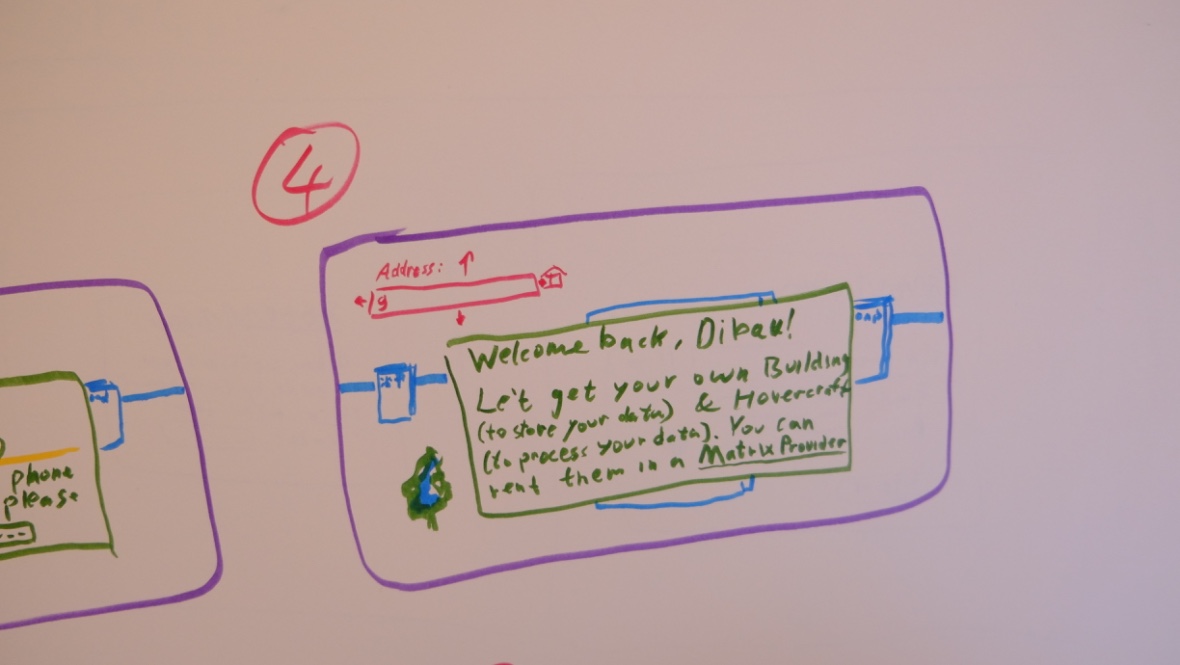 4
Address:
g
Welcome back, Dibau!
Le't get your own Building
(to store your data) & Hovercraft
(to process your data). You can
rent them in a Matrix Provider
phone
please